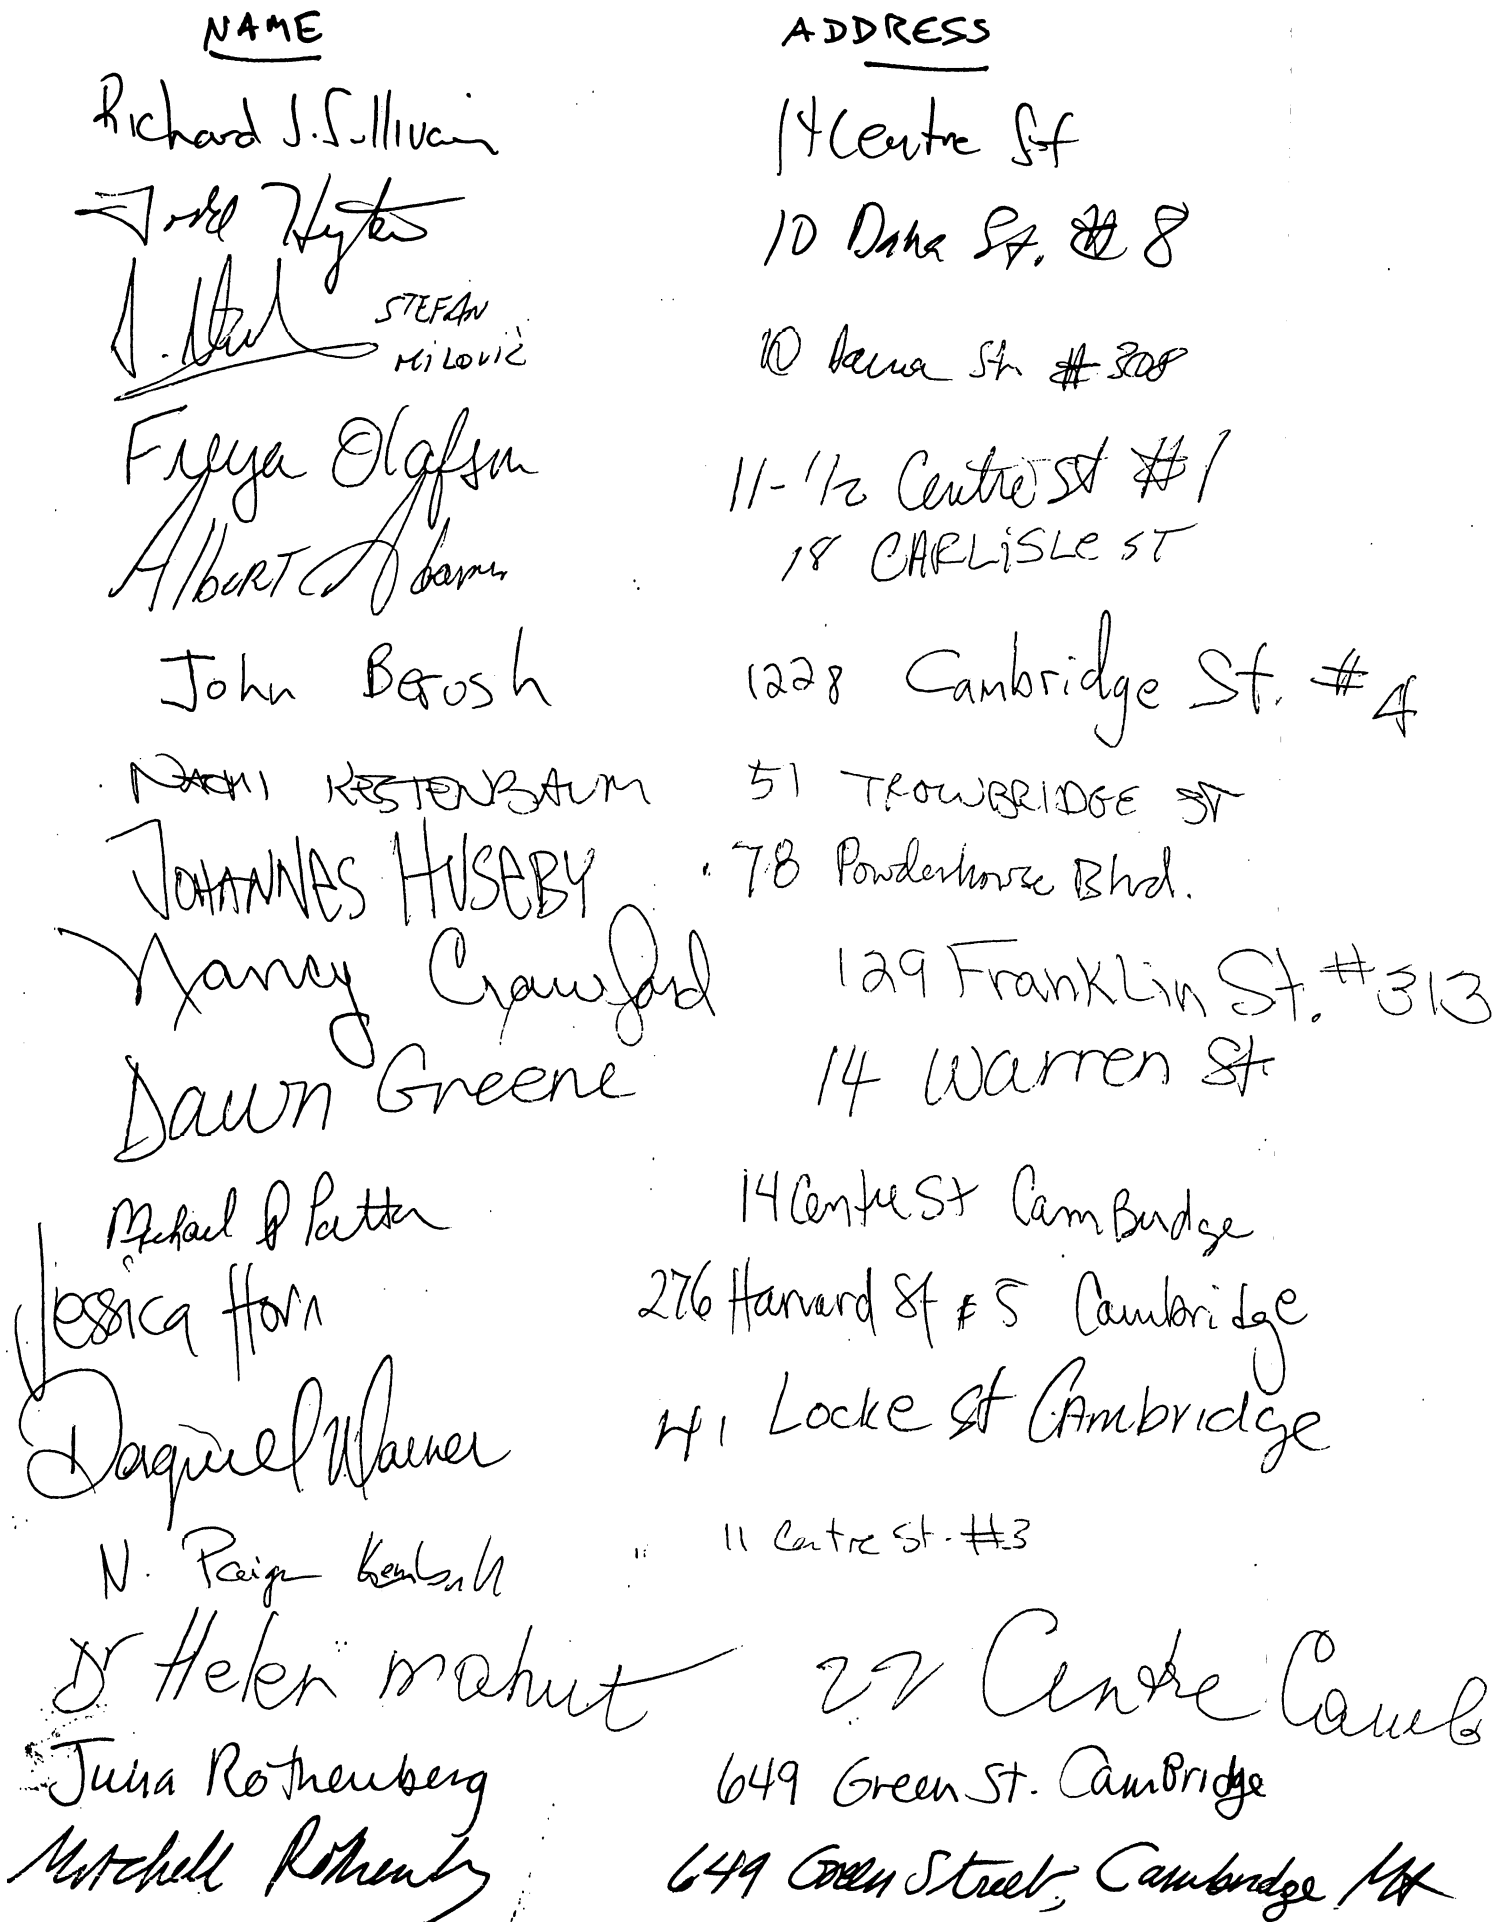 NAME ADDRESS
Richard J. Sullivan 14 Centre St
Todd 10 Dana St. # 8
STEFAN 10 Dana St. # 308
MILOVIĆ
Freya Olafson 11-1/2 Centre St #1
AlbeRT Adams 18 CARLiSLe ST
John Berosh 1228 Cambridge St. #4
KESTENBAUM 51 TROWBRIDGE ST
JOHANNES HUSEBY 78 Powderhouse Blvd.
Nancy Crawford 129 Franklin St. #313
Dawn Greene 14 Warren St.
Michael Patton 14 Centre St CamBridge
Jessica Horn 276 Harvard St # 5 Cambridge
Warner 41 Locke St Cambridge
N. Paige Kemball 11 Centre St. #3
Dr Helen Mahut 22 Centre Camb
Julia Rothenberg 649 Green St. CamBridge
Mitchell Rothenberg 649 Green Street, Cambridge MA